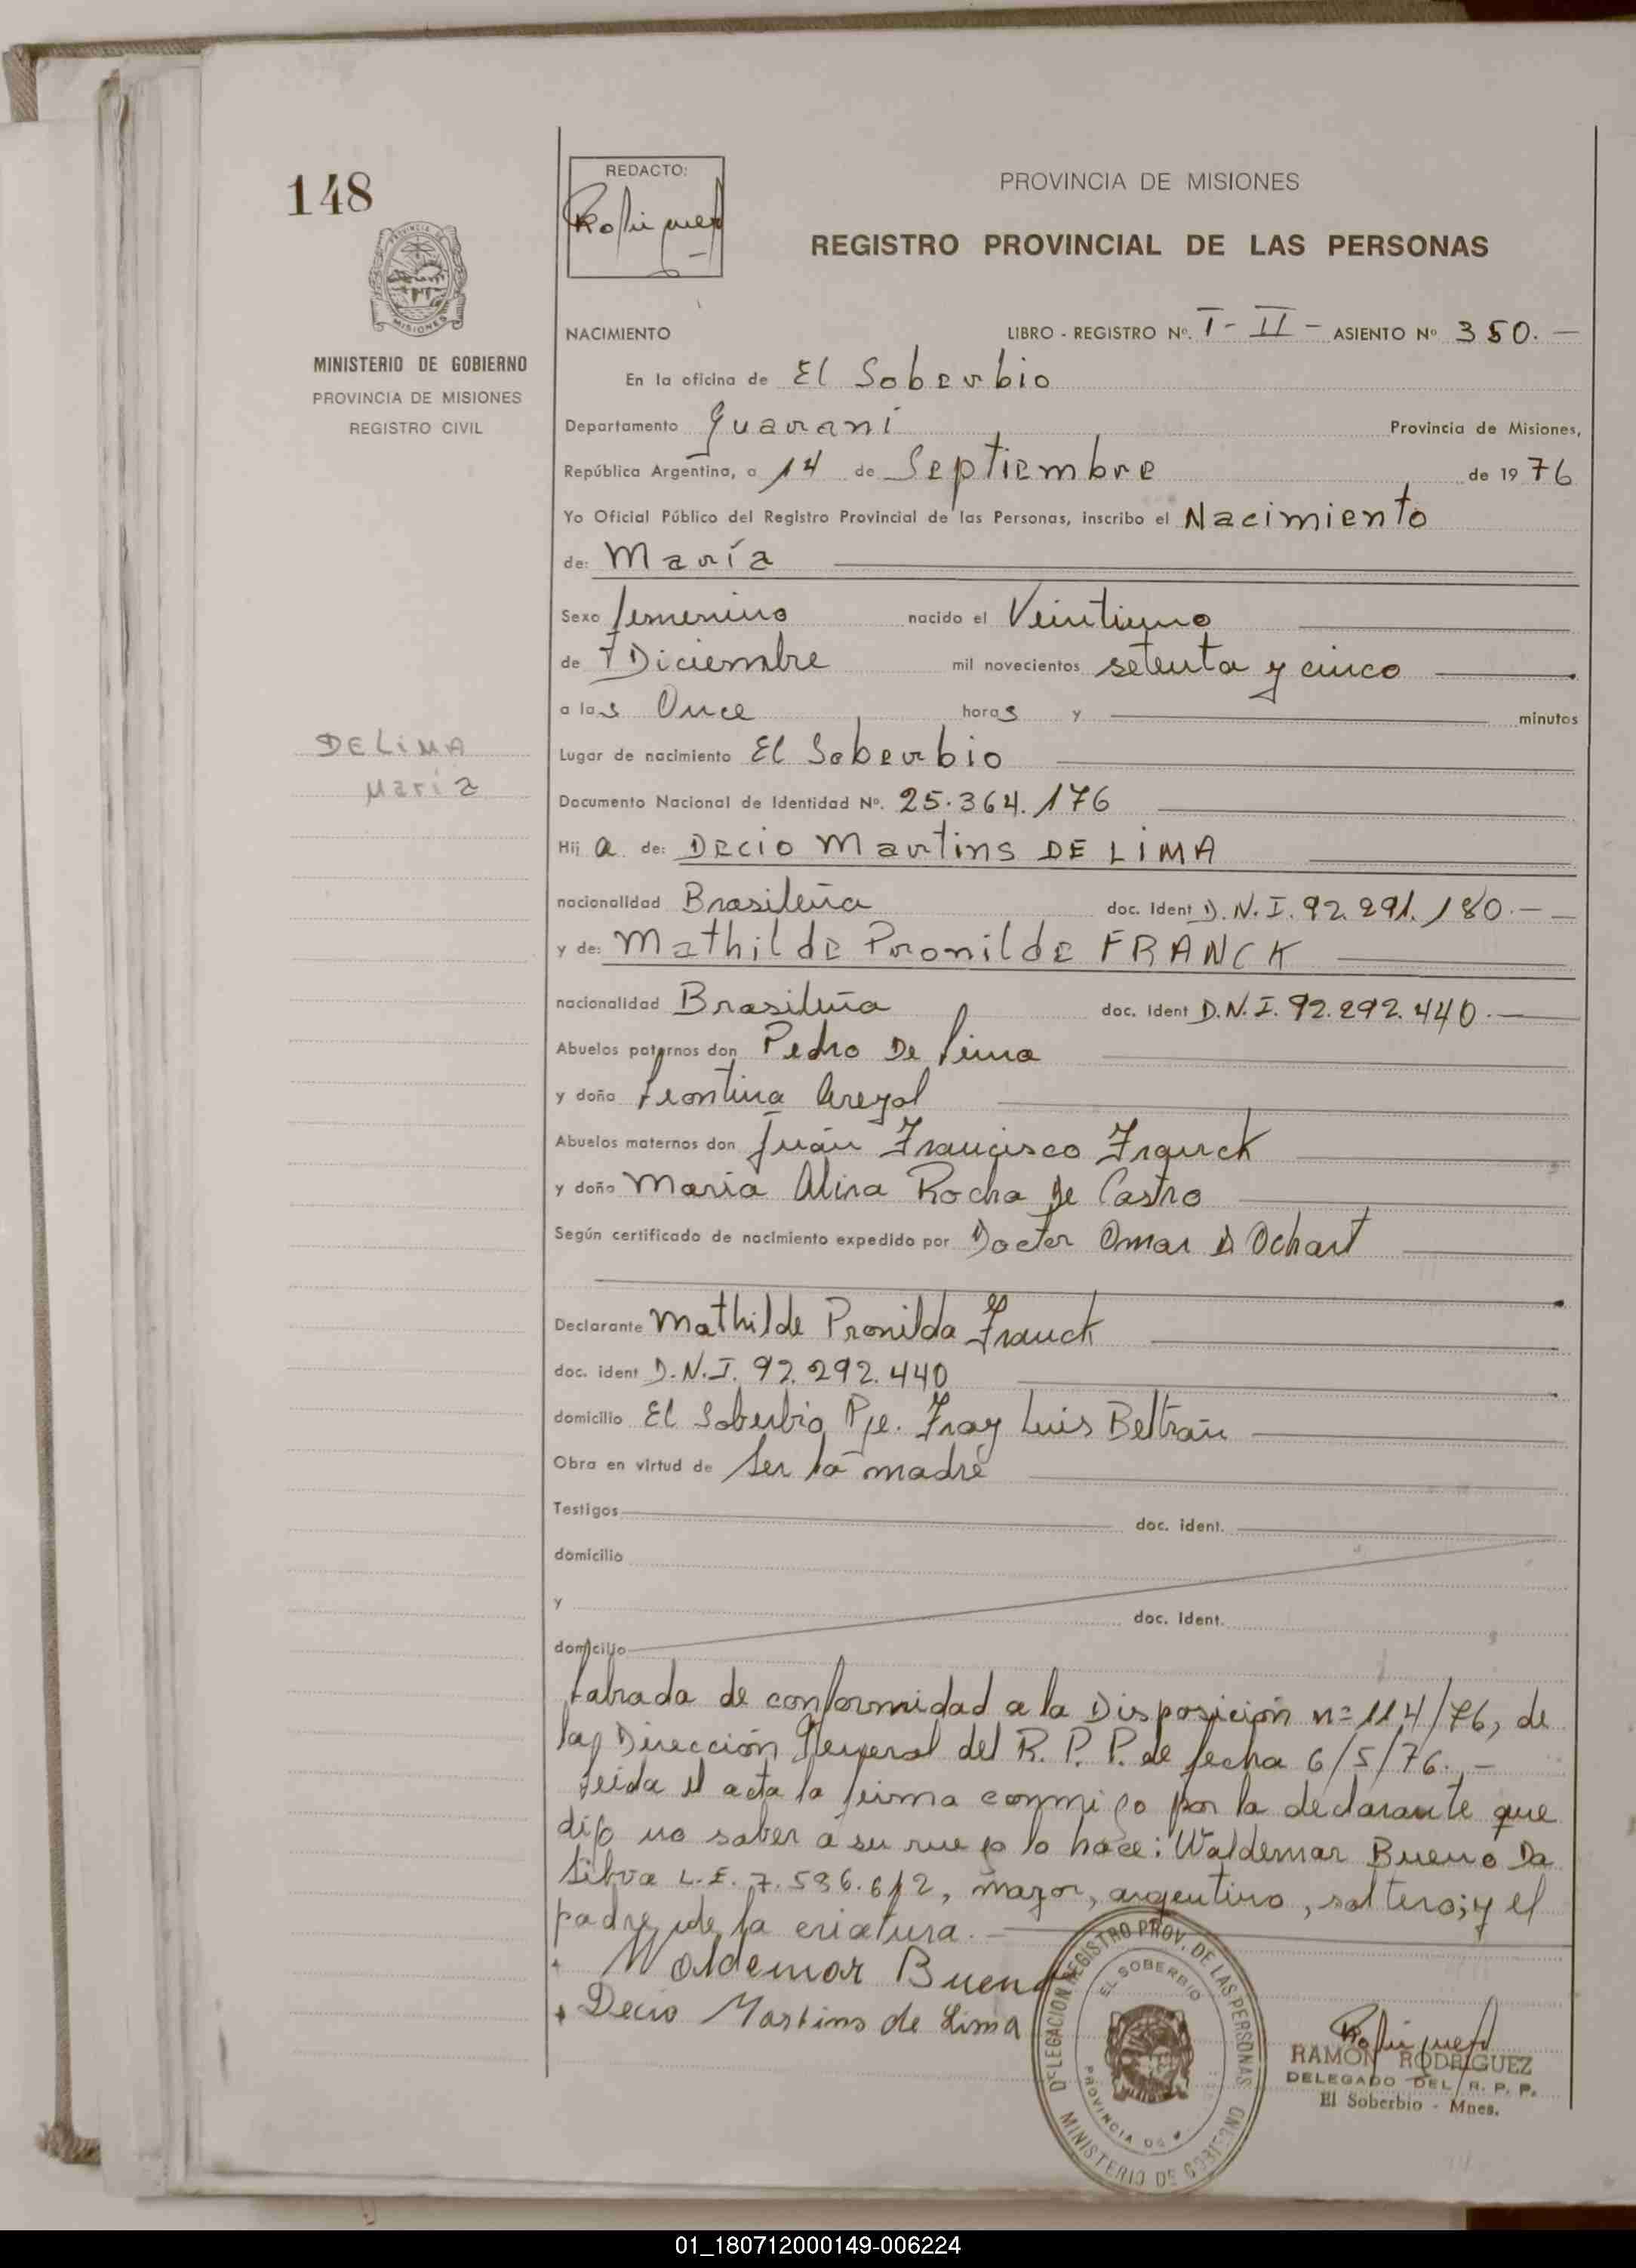 148
REDACTO:
PROVINCIA DE MISIONES
REGISTRO PROVINCIAL DE LAS PERSONAS
PROVINCIA DE
MISIONES
MINISTERIO DE GOBIERNO
PROVINCIA DE MISIONES
REGISTRO CIVIL
NACIMIENTO LIBRO - REGISTRO Nº. I - II - ASIENTO Nº 350.-
En la oficina de El Soberbio
Departamento Guaraní Provincia de Misiones,
República Argentina, a 14 de Septiembre de 1976
Yo Oficial Público del Registro Provincial de las Personas, inscribo el Nacimiento
de: María
Sexo femenino nacido el Veintiuno
de Diciembre mil novecientos setenta y cinco
a las Once horas y minutos
DE LIMA
María
Lugar de nacimiento El Soberbio
Documento Nacional de Identidad Nº. 25.364.176
Hij a de: Decio Martins DE LIMA
nacionalidad Brasileña doc. Ident D.N.I. 92.291.180.-
y de: Mathilde Pronilde FRANCK
nacionalidad Brasileña doc. Ident D.N.I. 92.292.440.-
Abuelos paternos don Pedro De Lima
y doña Leontina
Abuelos maternos don Juan Francisco Franck
y doña Maria Alina Rocha de Castro
Según certificado de nacimiento expedido por Doctor Omar D Ochart
Declarante Mathilde Pronilda Franck
doc. ident D.N.I. 92.292.440
domicilio El Soberbio Pje. Fray Luis Beltran
Obra en virtud de Ser la madre
Testigos doc. ident.
domicilio
y doc. Ident.
domicilio
Labrada de conformidad a la Disposición nº 114/76, de
la Dirección General del R. P. P. de fecha 6/5/76.-
Leida el acta la firma conmigo por la declarante que
dijo no saber a su ruego lo hace: Waldemar Bueno Da
Silva L.E. 7.536.612, mayor, argentino, soltero; y el
padre de la criatura.-
Waldemar Bueno
Decio Martins de Lima
DELEGACION REGISTRO PROV. DE LAS PERSONAS
EL SOBERBIO
PROVINCIA DE
MINISTERIO DE GOBIERNO
RAMON RODRIGUEZ
DELEGADO DEL R. P. P.
El Soberbio - Mnes.
01_180712000149-006224